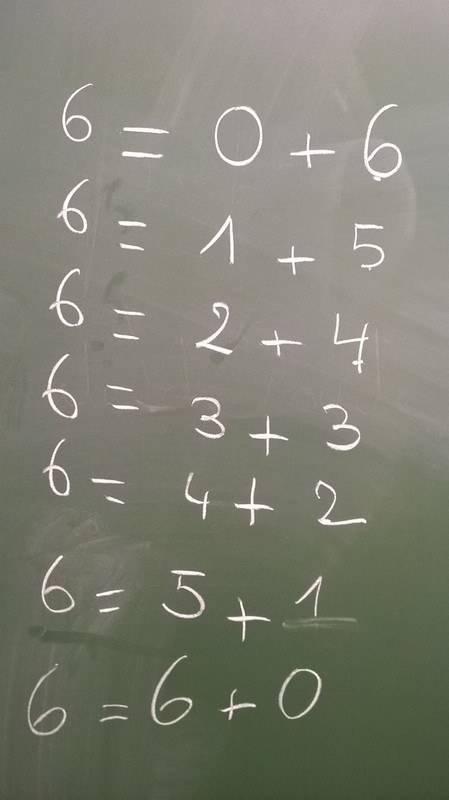 6 = 0 + 6
6 = 1 + 5
6 = 2 + 4
6 = 3 + 3
6 = 4 + 2
6 = 5 + 1
6 = 6 + 0